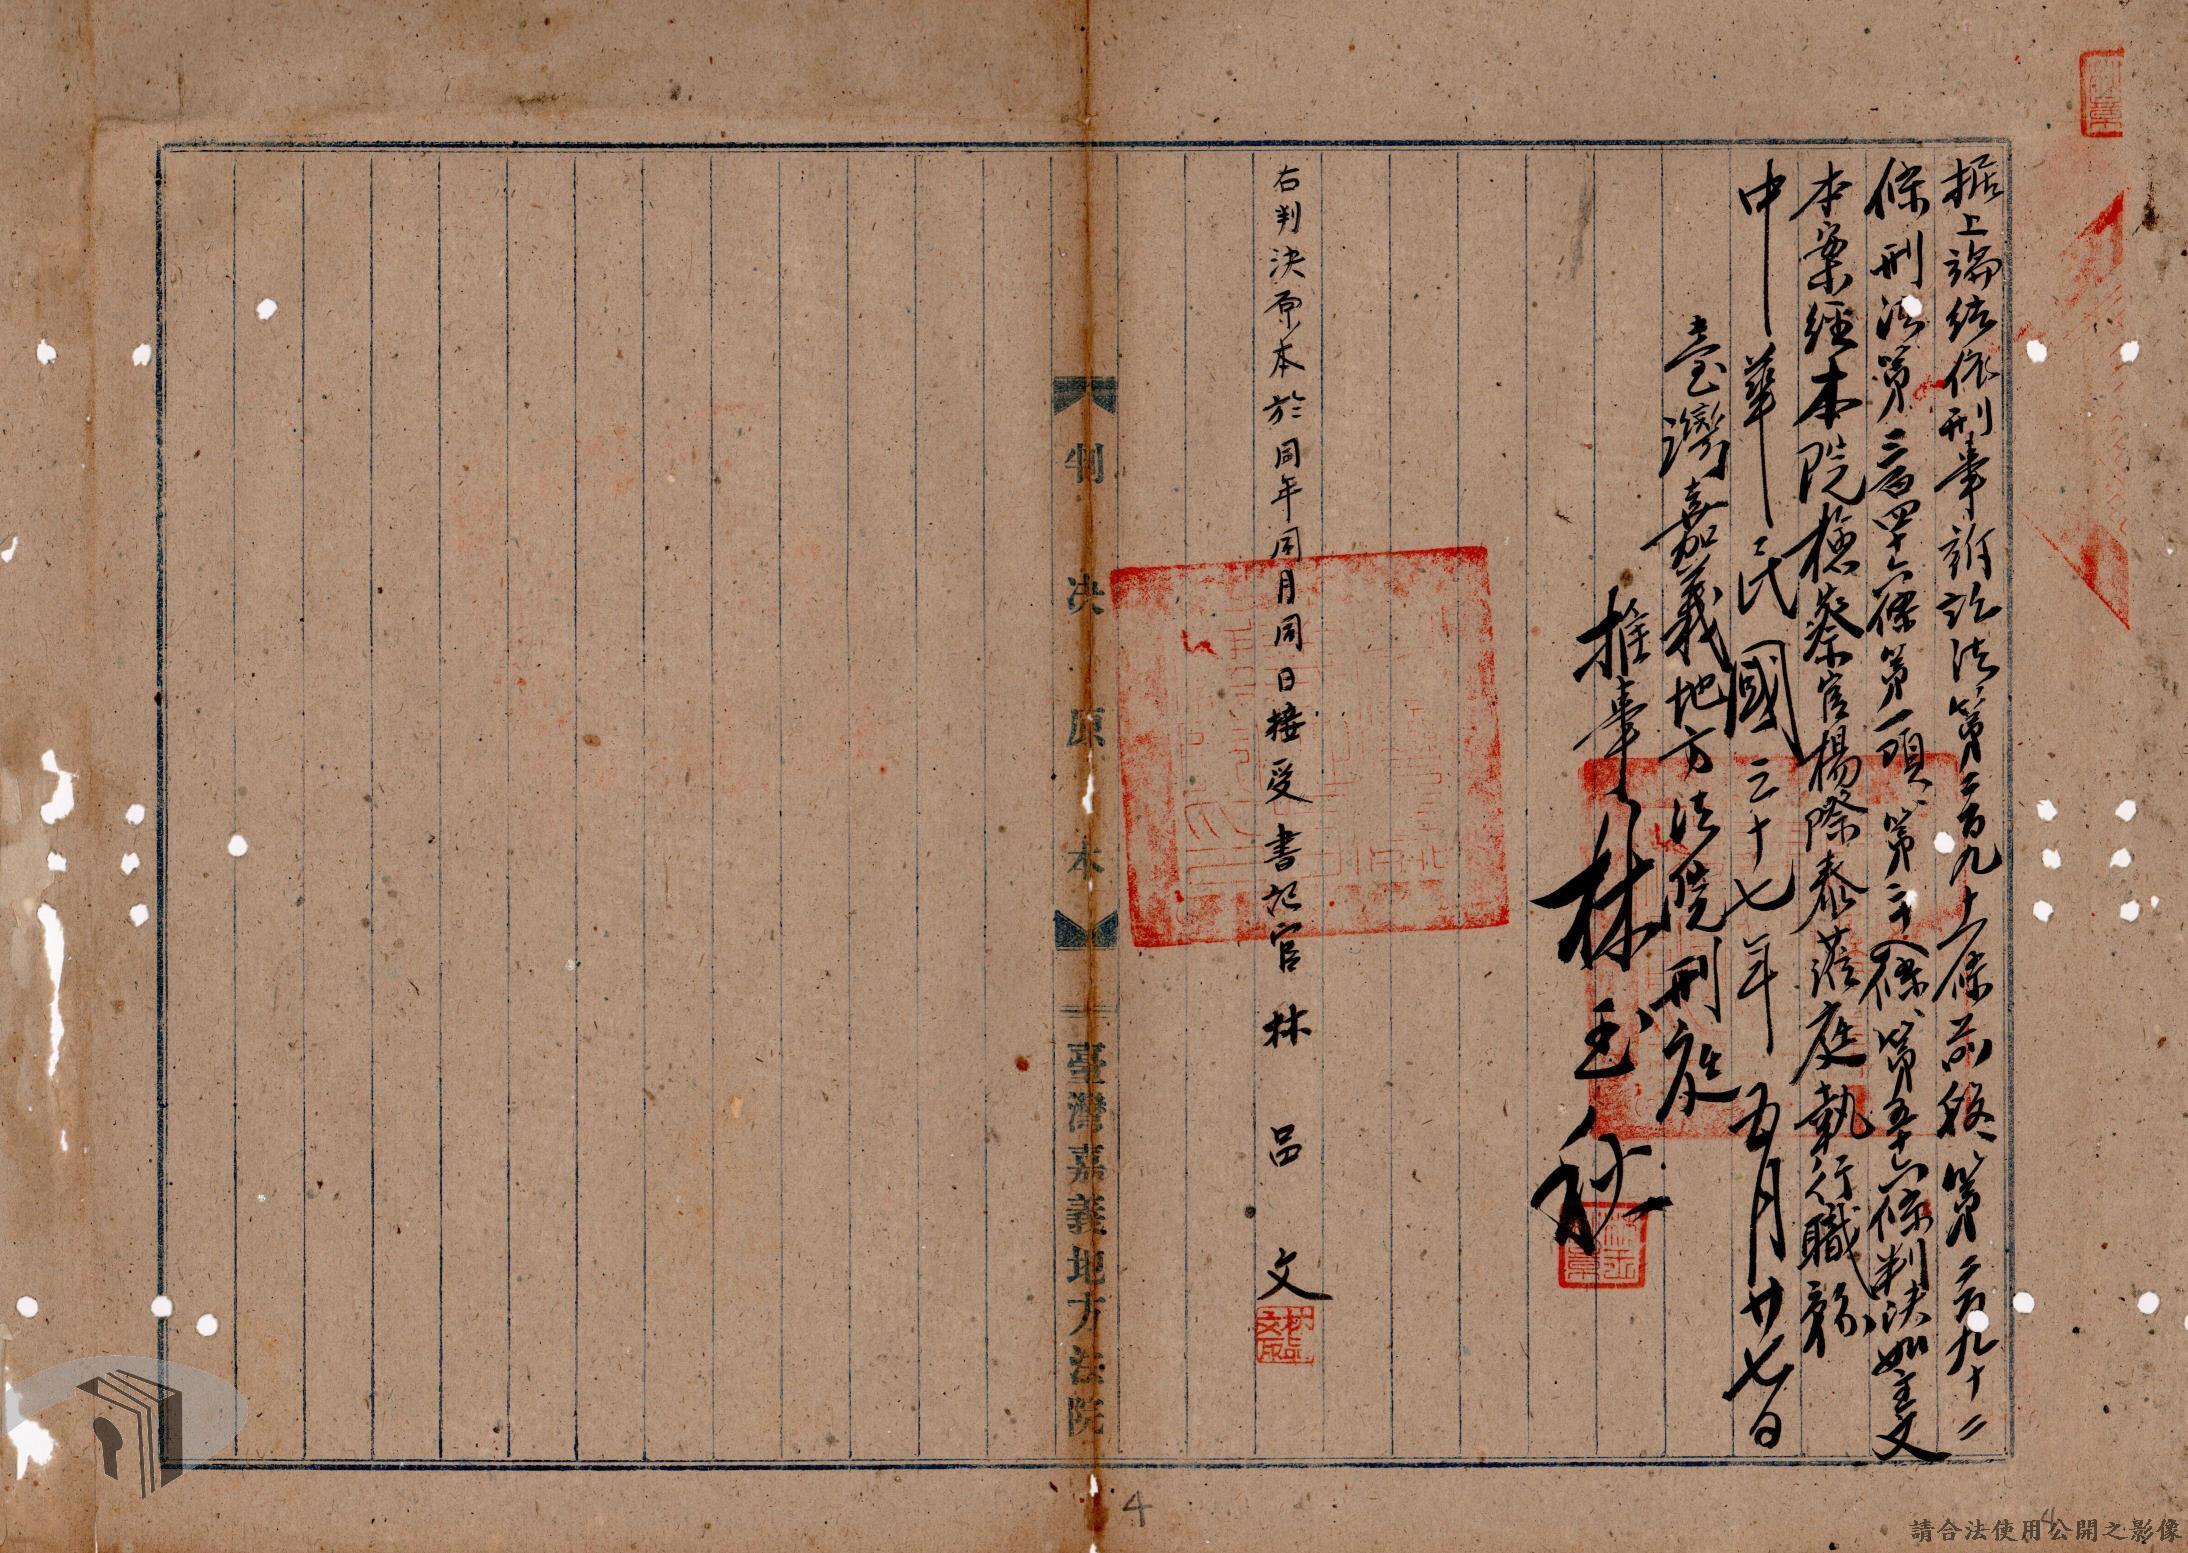 據上論結依刑事訴訟法第二百九十一條前段、第二百九十二
條刑法第三百四十六條第一項、第三十八條、第五十六條判決如主文
本案經本院檢察官楊際泰蒞庭執行職務
中華民國三十七年五月廿七日
臺灣嘉義地方法院刑庭
推事林玉秋
右判決原本於同年同月同日接受書記官林呂文
判決原本
臺灣嘉義地方法院
4
請合法使用公開之影像